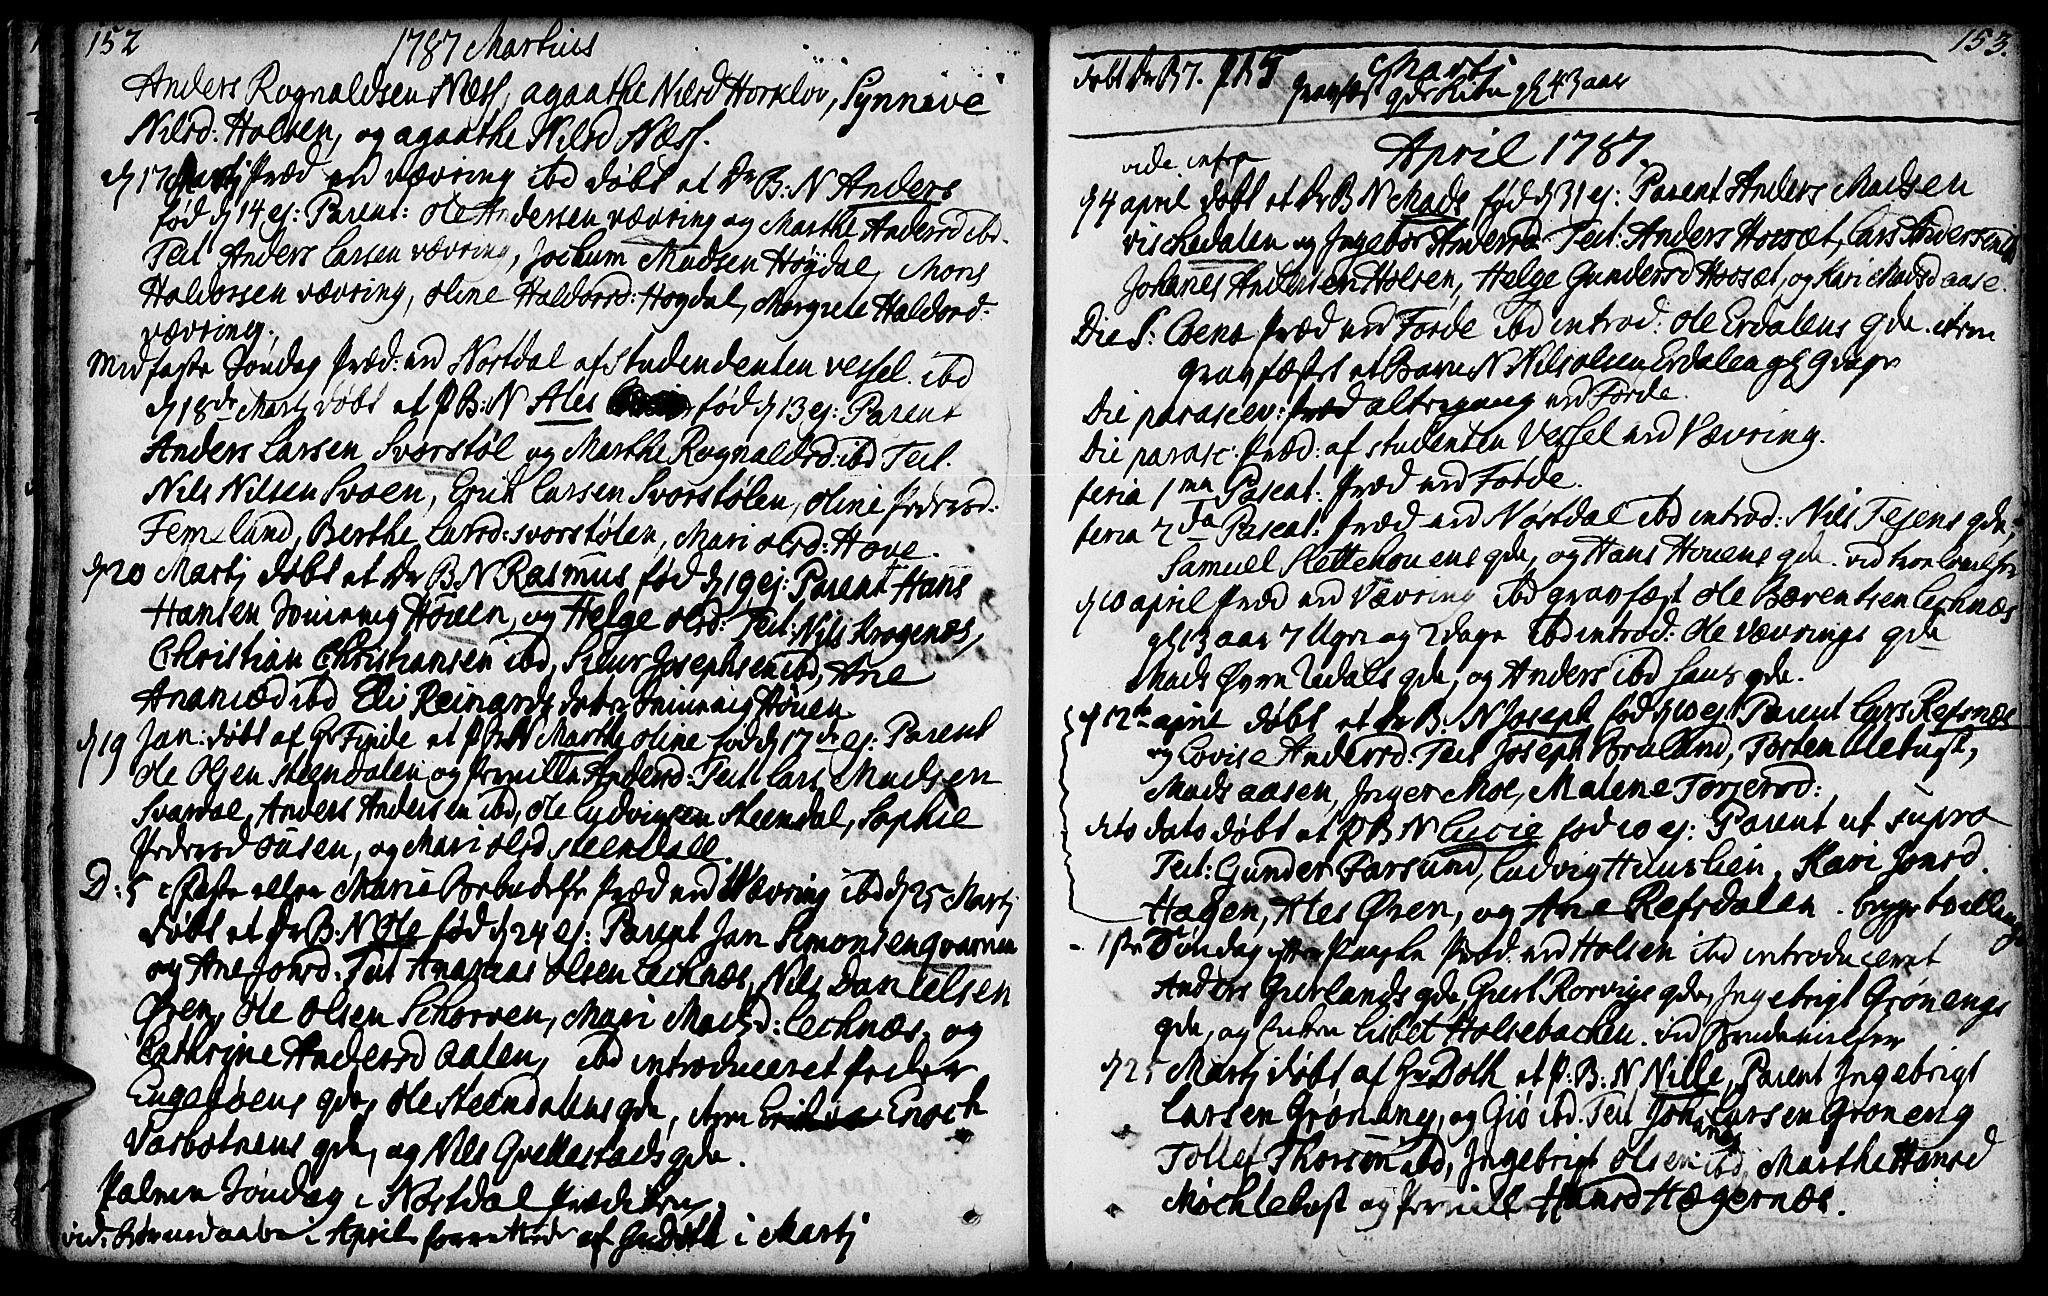 152
1787 Martius
Anders Rognaldsen Næss, agaathe Nilsd Horklov, Synneve
Nilsd: Holsen, og agaathe Nilsd Næss.
d 17 Martj Præd ved Vævring ibd døbt et Dr B: N Anders
fød d 14 ej: Parent: Ole Andersen vævring og Marthe Andersd ibd.
Test Anders Larsen vævring, Jochum Madsen Høydal, Mons
Haldorsen vævring, Oline Haldorsd: Høgdal, Margrete Haldorsd.
vævring.
Midfaste Søndag Præd: ved Nøstdal af Studendenten Vessel. ibd
d 18de Martj døbt et P B: N Ales fød d 13 ej: Parent
Anders Larsen Svorstøl og Marthe Rognaldsd: ibd Test.
Nils Nilsen Svoen, Erik Larsen Svorstølen, Oline Pedersd:
Femland, Berthe Larsd: Svorstølen, Mari Olsd: Hove.
d 20 Martj døbt et Dr B N Rasmus fød d 19 ej: Parent Hans
Hansen Høuen, og Helge Olsd: Test: Nils Krogenæs,
Christian Christiansen ibd, Siur Josephsen ibd, Ane
Ananiæd ibd Eli Reinards datter Høuen
d 19 Jan: døbt af Hr Finde et P B N Marthe Oline fød d 17de ej: Parent
Ole Olsen Steendalen og Pernille Andersd: Test Lars Madsen
Svardal, Anders Andersen ibd, Ole Ludvigsen Steendal, Sophie
Pedersd Susen, og Mari Olsd Steendall.
D: 5 i Faste eller Mariæ Bebudelse Præd ved Vævring ibd d 25 Martj
døbt et Dr B: N Ole fød d 24 ej: Parent Jan Simonsen Qvamen
og Ane Jonsd: Test Ananias Olsen Lechnæs, Nils Danielsen
Øren, Ole Olsen Schorven, Mari Madsd: Lechnæs, og
Cathrine Andersd Aalen, ibd introduceret Peder
Engebøens qde, Ole Steendalens qde, Enoch
Varbotnens qde, og Nils Qvellestads qde.
Palme Søndag i Nøstdal Prædiken
vid: i April af Hr Both i Martj
153
døbt Dr B 7. P B 5 Martj
gravfæst 43 aar
April 1787.
vide infra
d 4 april døbt et Dr B N Mads fød d 31 ej: Parent Anders Madsen
Vischedalen og Ingebor Andersd Test: Anders Hovsæt, Lars Andersen
Johanes Andersen Holsen, Helge Gundersd Hovsæt, og Kari Madsd aase.
Die S: Coena Præd ved Førde ibd introd: Ole Erdalens qde. item
gravfæstet et Barn N Nils Olsen Erdalen gl 9 dage
Die parascev: Præd altergang ved Førde.
Die parasc: Præd: af studenten Vessel ved Vævring.
feria 1ma Pascat: Præd ved Førde.
feria 2da Pascat: Præd ved Nøstdal ibd introd: Nils Tefens qde,
Samuel Slettehouens qde, og Hans Houens qde.
d 10 april Præd ved Vævring ibd gravfæst Ole Bærentsen Lechnæs
gl 13 aar 7 Uger og 2 dage ibd introd: Ole Vævrings qde
Mads Øvre Udals qde, og Anders ibd hans qde.
d 12te april døbt et Dr B. N Joseph fød d 10 ej Parent Lars Refsnæs
og Lovise Andersd: Test Joseph Bruland, Torsten
Mads aasen, Inger Moe, Malene Torjersd:
dito dato døbt et P B N Lucie fød 10 ej: Parent ut supra
Test: Gunder Farsund, Ludvig Huuslien, Kari Jonsd.
Hagen, Ales Øren, og Ane Refsdalen. begge tvillinge
1ste Søndag efter Paaske Præd: ved Holsen ibd introduceret
Anders Gierlands qde, Giert Rørvigs qde, Ingebrigt Grønengs
qde, og Enken Lisbet Holsebachen. vid Brudevielsen
d 25 Martj døbt af Hr Both et P: B: N Nille, Parent Ingebrigt
Larsen Grøneng, og Giø ibd. Test Johanes Larsen Grøneng
Tollef Thorsen ibd, Ingebrigt Olsen ibd, Marthe Hansd
Møchlebost og Pernille Hansd Hægernæs.